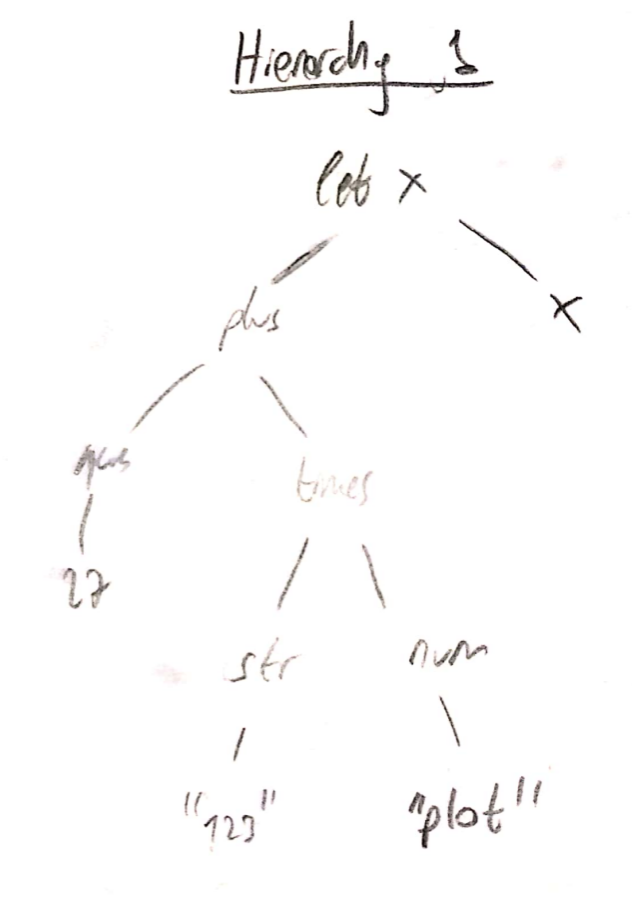 Hierarchy 1
let x
plus
x
times
27
str
num
"123"
"plot"